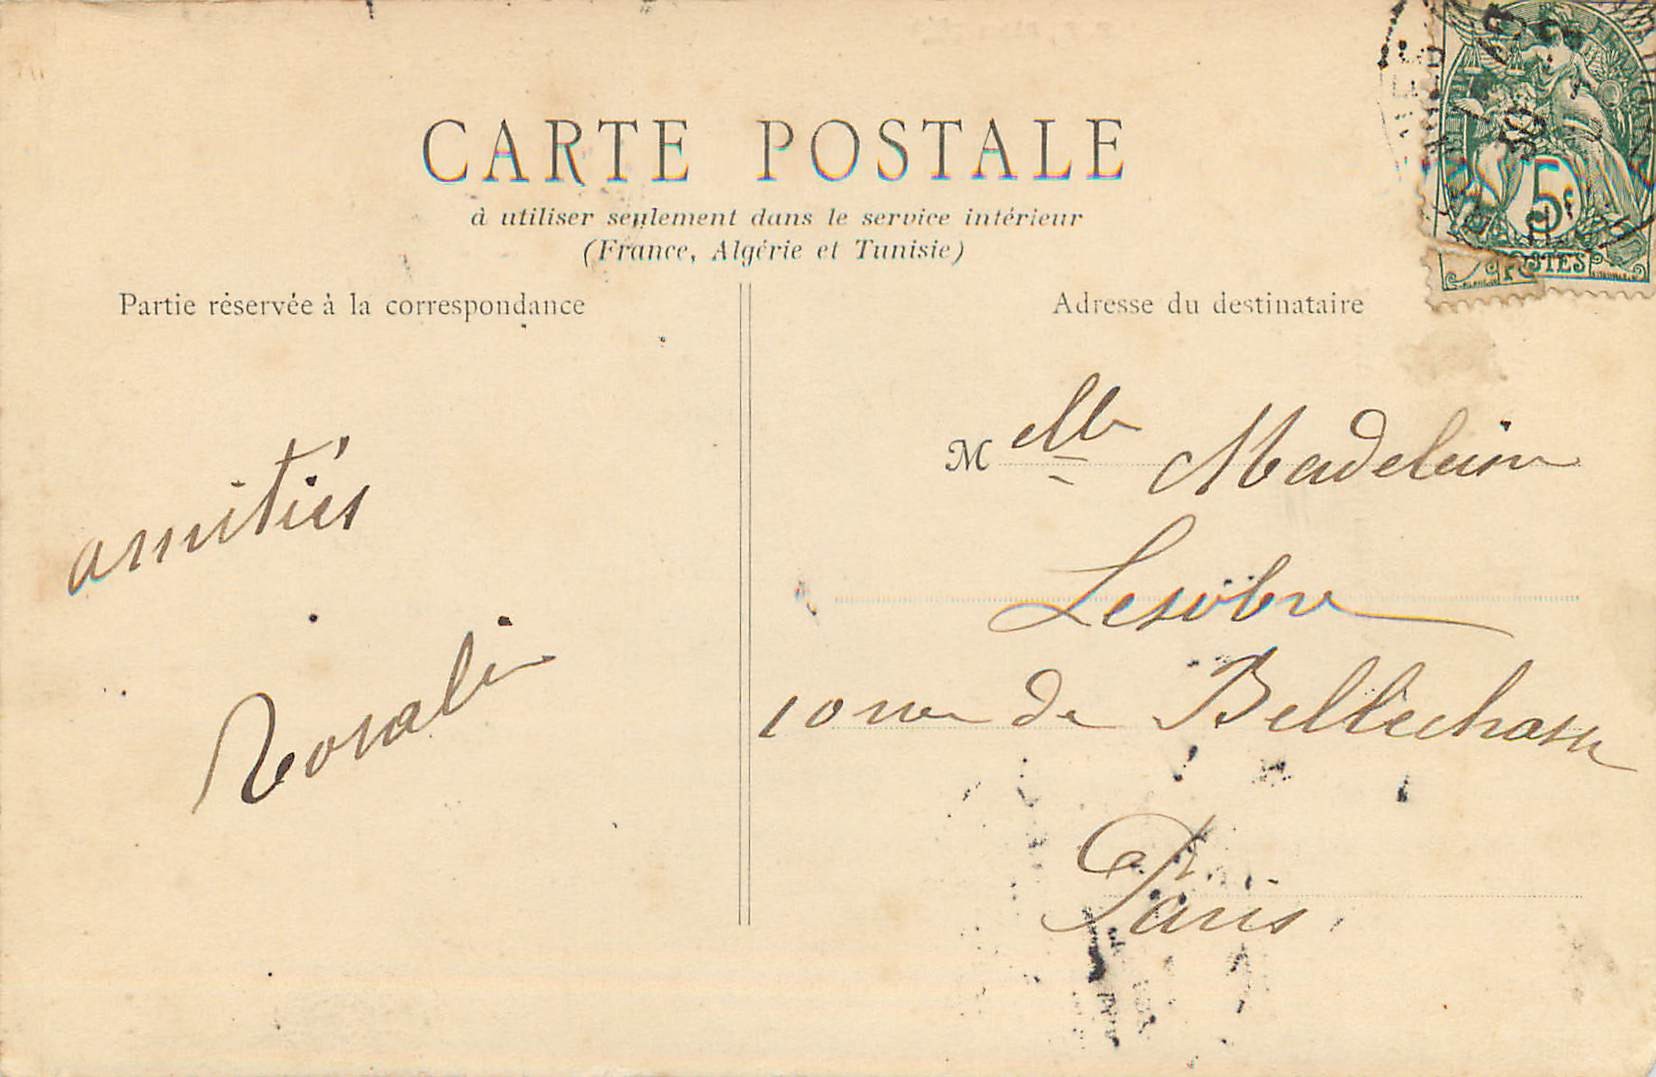 CARTE POSTALE
à utiliser seulement dans le service intérieur
(France, Algérie et Tunisie)
Partie réservée à la correspondance
Adresse du destinataire
amitiés
Rosalie
Melle Madeleine
Lesobre
10 rue de Bellechasse
Paris
5c
POSTES